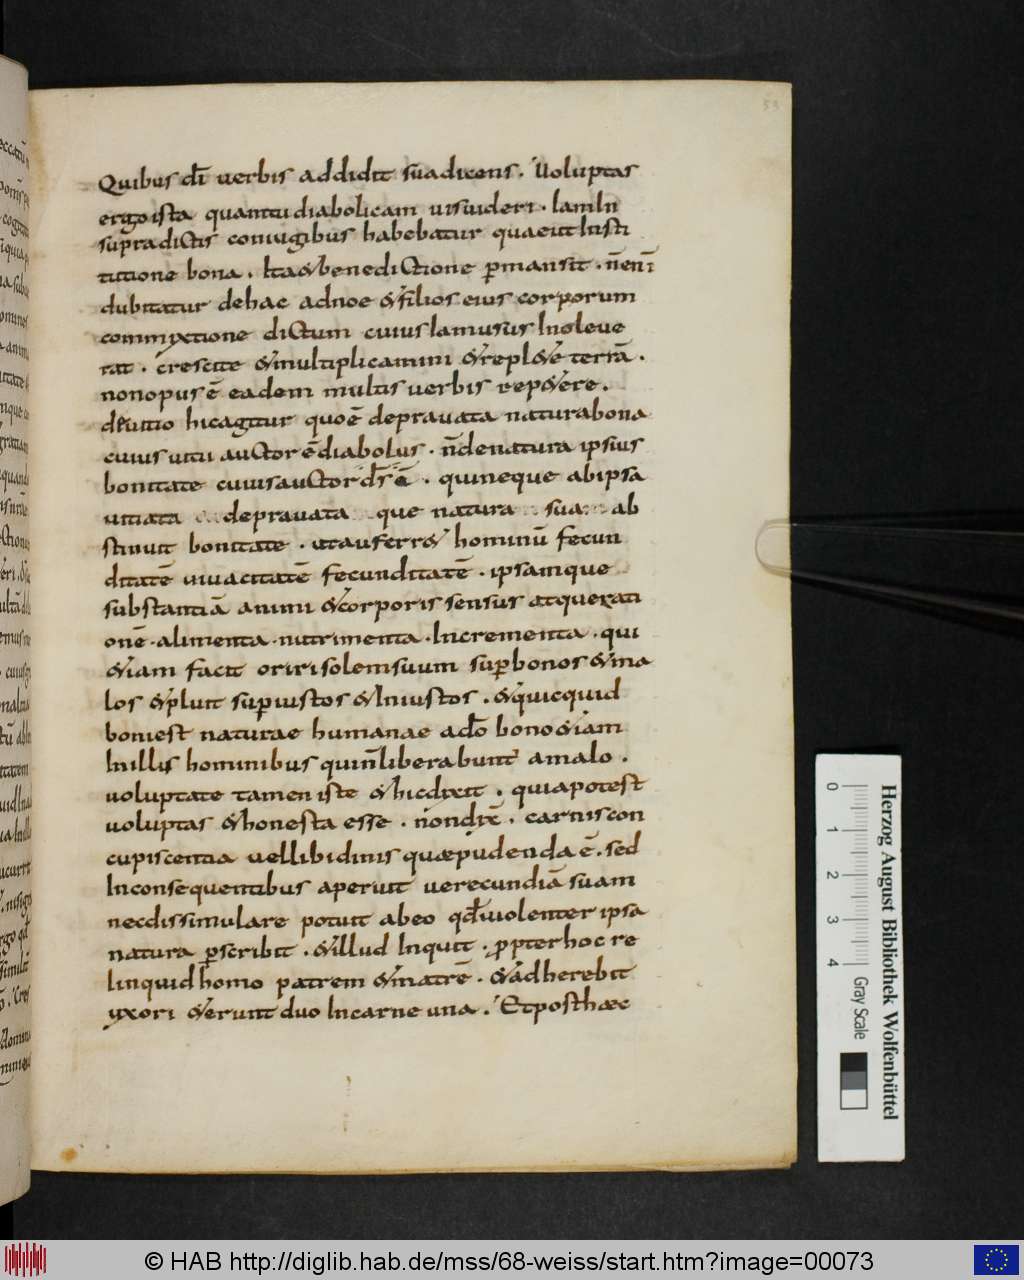 Quibus dī verbis addidit suadicens. Voluptas
ergo ista quantu diabolicam visvideri. Iam In
supradictis coniugibus habebatur quae eit Insti
tutione bona. Ita & benedictione pmansit. n̄ enī
dubitatur de hac adnoe & filios eius corporum
commixtione dictum cuius lam usus Inoleve
rat. crescite & multiplicamini & repl&e terrā.
non opus ē eadem multis verbis rep&ere.
de vitio hic agitur quo ē depravata natura bona
cuius vitii auctor ē diabolus. n̄ de natura ipsius
bonitate cuius auctor d̄s ē. qui neque ab ipsa
vitiata depravata que natura sua ab
stinuit bonitate. ut auferr& hominū fecun
ditatē vivacitatē fecunditatē. ipsamque
substantiā animi & corporis sensus atque rati
onē. alimenta. nutrimenta. Incrementa. qui
&iam facit oriri solem suum sup bonos & ma
los & pluit sup iustos & Iniustos. & quicquid
boni est naturae humanae a dō bono &iam
In illis hominibus qui n̄ liberabunt a malo.
voluptate tamen iste & hic dixit. quia potest
voluptas & honesta esse. non dix̄. carnis con
cupiscentia vel libidinis quae pudenda ē. sed
In consequentibus aperuit verecundiā suam
nec dissimulare potuit ab eo qd violenter ipsa
natura pscribit. & illud Inquit. ppter hoc re
linquid homo patrem & matrē. & adherebit
yxori & erunt duo In carne una. Et post haec
Herzog August Bibliothek Wolfenbüttel
0 1 2 3 4 Gray Scale
© HAB http://diglib.hab.de/mss/68-weiss/start.htm?image=00073